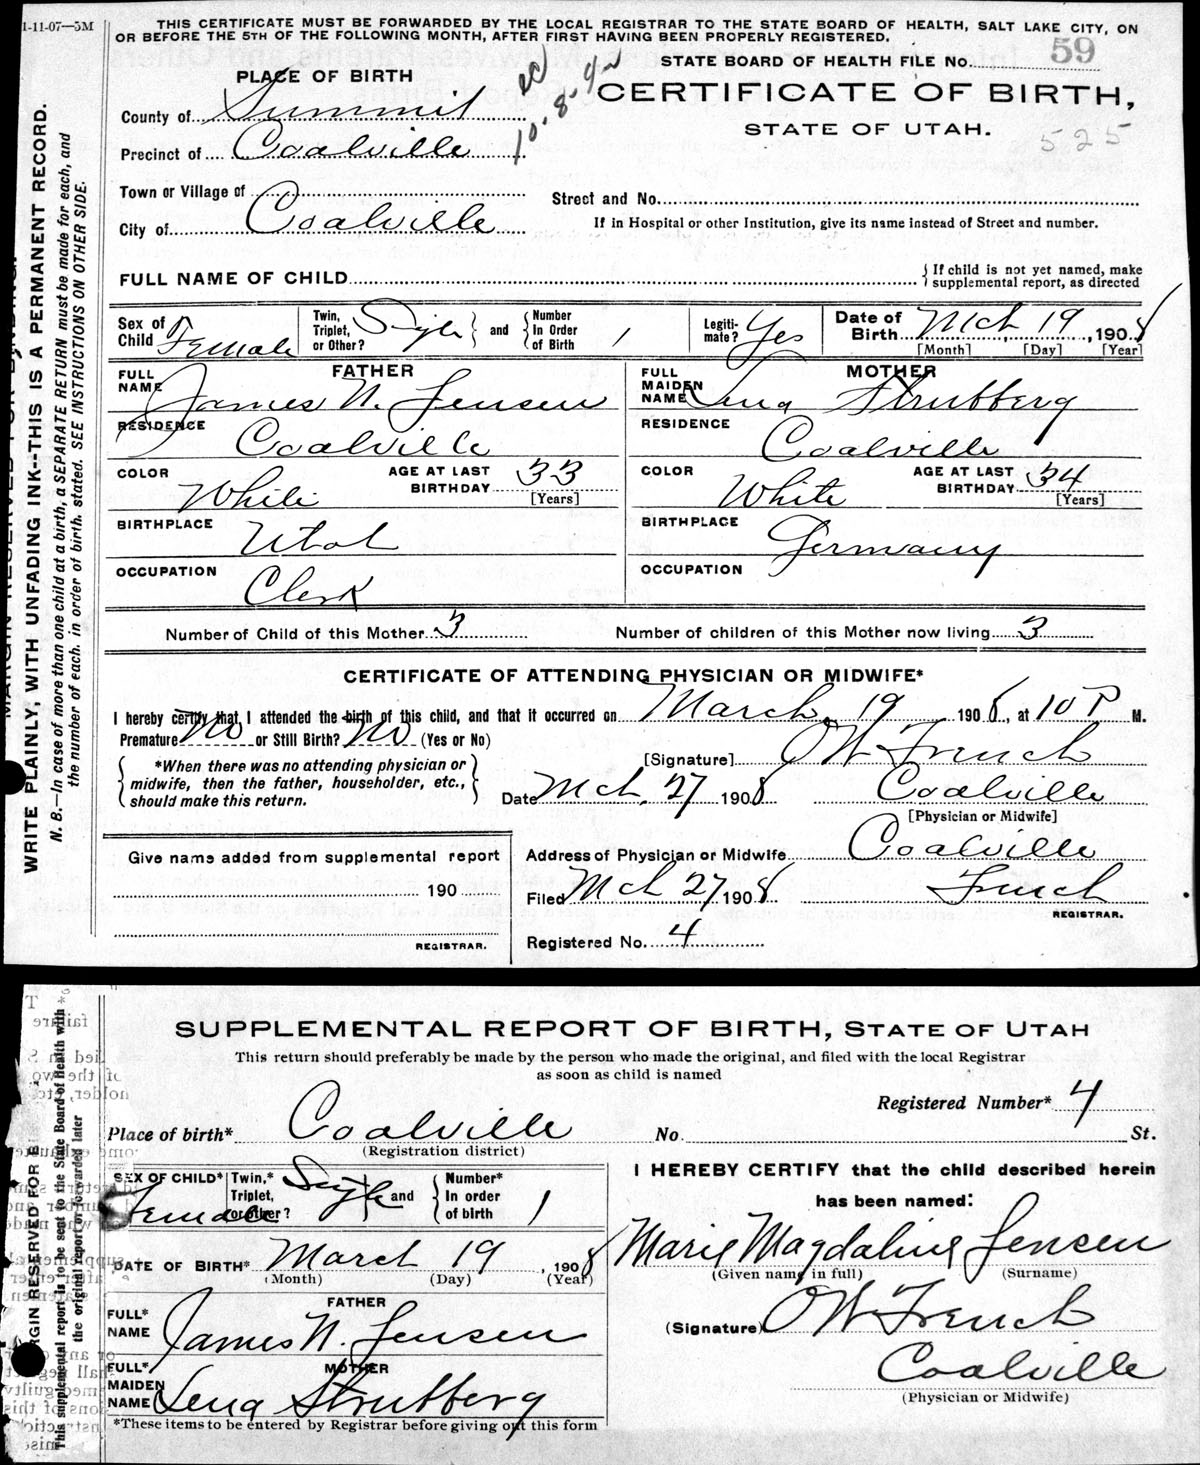 1-11-07—5M
THIS CERTIFICATE MUST BE FORWARDED BY THE LOCAL REGISTRAR TO THE STATE BOARD OF HEALTH, SALT LAKE CITY, ON
OR BEFORE THE 5TH OF THE FOLLOWING MONTH, AFTER FIRST HAVING BEEN PROPERLY REGISTERED.
STATE BOARD OF HEALTH FILE No. 59
PLACE OF BIRTH
CERTIFICATE OF BIRTH,
STATE OF UTAH.
525
10-8-42
County of Summit
Precinct of Coalville
Town or Village of
Street and No.
City of Coalville
If in Hospital or other Institution, give its name instead of Street and number.
FULL NAME OF CHILD
{ If child is not yet named, make
supplemental report, as directed
Sex of Child Female
Twin, Triplet, or Other? Single } and { Number In Order of Birth 1
Legiti-mate? Yes
Date of Birth Mch 19, 1908
[Month] [Day] [Year]
FATHER
FULL NAME James N. Jensen
RESIDENCE Coalville
COLOR White
AGE AT LAST BIRTHDAY 33 [Years]
BIRTHPLACE Utah
OCCUPATION Clerk
MOTHER
FULL MAIDEN NAME Lena Strubberg
RESIDENCE Coalville
COLOR White
AGE AT LAST BIRTHDAY 34 [Years]
BIRTHPLACE Germany
OCCUPATION
Number of Child of this Mother 3
Number of children of this Mother now living 3
CERTIFICATE OF ATTENDING PHYSICIAN OR MIDWIFE*
I hereby certify that I attended the birth of this child, and that it occurred on March, 19 1908, at 10 P M.
Premature No or Still Birth? No (Yes or No)
{ *When there was no attending physician or
midwife, then the father, householder, etc.,
should make this return. }
[Signature] O W French
Date Mch. 27 1908
Coalville
[Physician or Midwife]
Give name added from supplemental report
190
REGISTRAR.
Address of Physician or Midwife Coalville
Filed Mch 27 1908 French
REGISTRAR.
Registered No. 4
MARGIN RESERVED FOR BINDING.
WRITE PLAINLY, WITH UNFADING INK--THIS IS A PERMANENT RECORD.
N. B.—In case of more than one child at a birth, a SEPARATE RETURN must be made for each, and
the number of each, in order of birth, stated. SEE INSTRUCTIONS ON OTHER SIDE.
SUPPLEMENTAL REPORT OF BIRTH, STATE OF UTAH
This return should preferably be made by the person who made the original, and filed with the local Registrar
as soon as child is named
Registered Number* 4
Place of birth* Coalville No. St.
(Registration district)
SEX OF CHILD* Female
Twin,* Triplet, or other? Single } and { Number* In order of birth 1
DATE OF BIRTH* March 19, 1908
(Month) (Day) (Year)
FATHER
FULL* NAME James N. Jensen
MOTHER
FULL* MAIDEN NAME Lena Strubberg
*These items to be entered by Registrar before giving out this form
I HEREBY CERTIFY that the child described herein
has been named:
Marie Magdaline Jensen
(Given name in full) (Surname)
(Signature) O W French
Coalville
(Physician or Midwife)
This supplemental report is to be sent to the State Board of Health with *
the original report or forwarded later